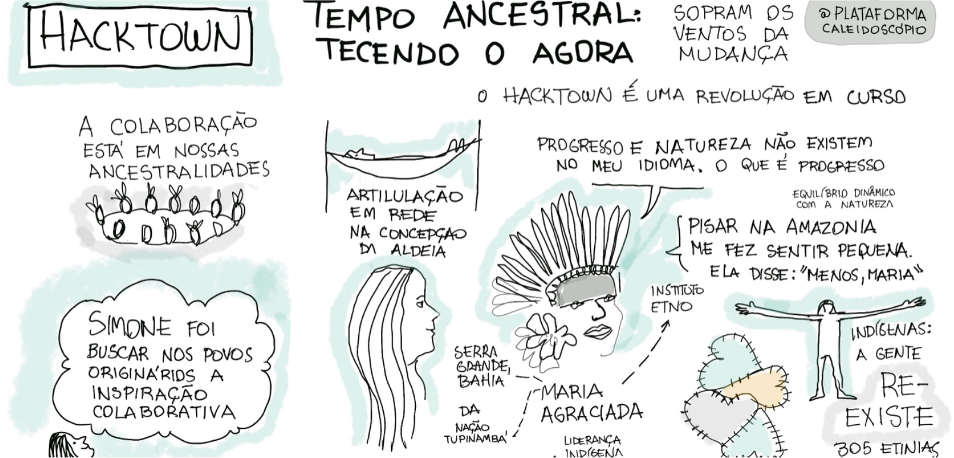 HACKTOWN
TEMPO ANCESTRAL:
TECENDO O AGORA
SOPRAM OS
VENTOS DA
MUDANÇA
@PLATAFORMA
CALEIDOSCÓPIO
O HACKTOWN É UMA REVOLUÇÃO EM CURSO
A COLABORAÇÃO
ESTÁ EM NOSSAS
ANCESTRALIDADES
SIMONE FOI
BUSCAR NOS POVOS
ORIGINÁRIOS A
INSPIRAÇÃO
COLABORATIVA
ARTILULAÇÃO
EM REDE
NA CONCEPÇÃO
DA ALDEIA
PROGRESSO E NATUREZA NÃO EXISTEM
NO MEU IDIOMA. O QUE É PROGRESSO
EQUILÍBRIO DINÂMICO
COM A NATUREZA
PISAR NA AMAZONIA
ME FEZ SENTIR PEQUENA.
ELA DISSE: "MENOS, MARIA"
INSTITUTO
ETNO
SERRA
GRANDE,
BAHIA
DA
NAÇÃO
TUPINAMBÁ
MARIA
AGRACIADA
LIDERANÇA
INDÍGENA
INDÍGENAS:
A GENTE
RE-
EXISTE
305 ETINIAS